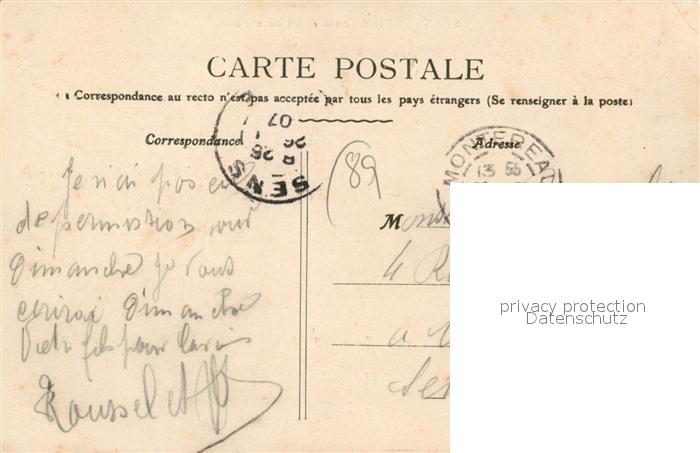 CARTE POSTALE
La Correspondance au recto n'est pas acceptée par tous les pays étrangers (Se renseigner à la poste)
Correspondance
Adresse
SENS
26
07
MONTEREAU
(89
Je n'ai pas eu
de permission pour
Dimanche je vous
écrirai Dimanche
Votre fils pour la vie
Rousselet
Mons
4 R
a
Sen
privacy protection
Datenschutz